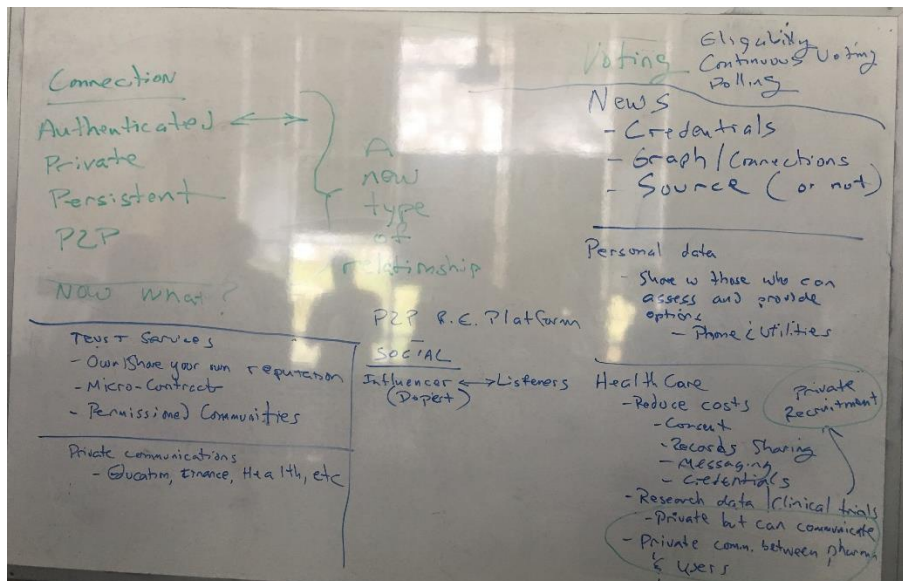 Connection
Authenticated
Private
Persistent
P2P
Now what?
A
new
type
of
relationship
Trust Services
- Own/Share your own reputation
- Micro-Contract
- Permissioned Communities
Private communications
- Education, Finance, Health, etc
P2P R.E. Platform
SOCIAL
Influencer <-> Listeners
Voting
Eligability
Continuous Voting
Polling
News
- Credentials
- Graph/Connections
- Source (or not)
Personal data
- Share w those who can
assess and provide
options
- Phone & Utilities
HealthCare
- Reduce costs
- Consent
- Records Sharing
- Messaging
- Credentials
- Research data/Clinical trials
- Private but can communicate
- Private comm. between pharma
& users
Private
Recruitment